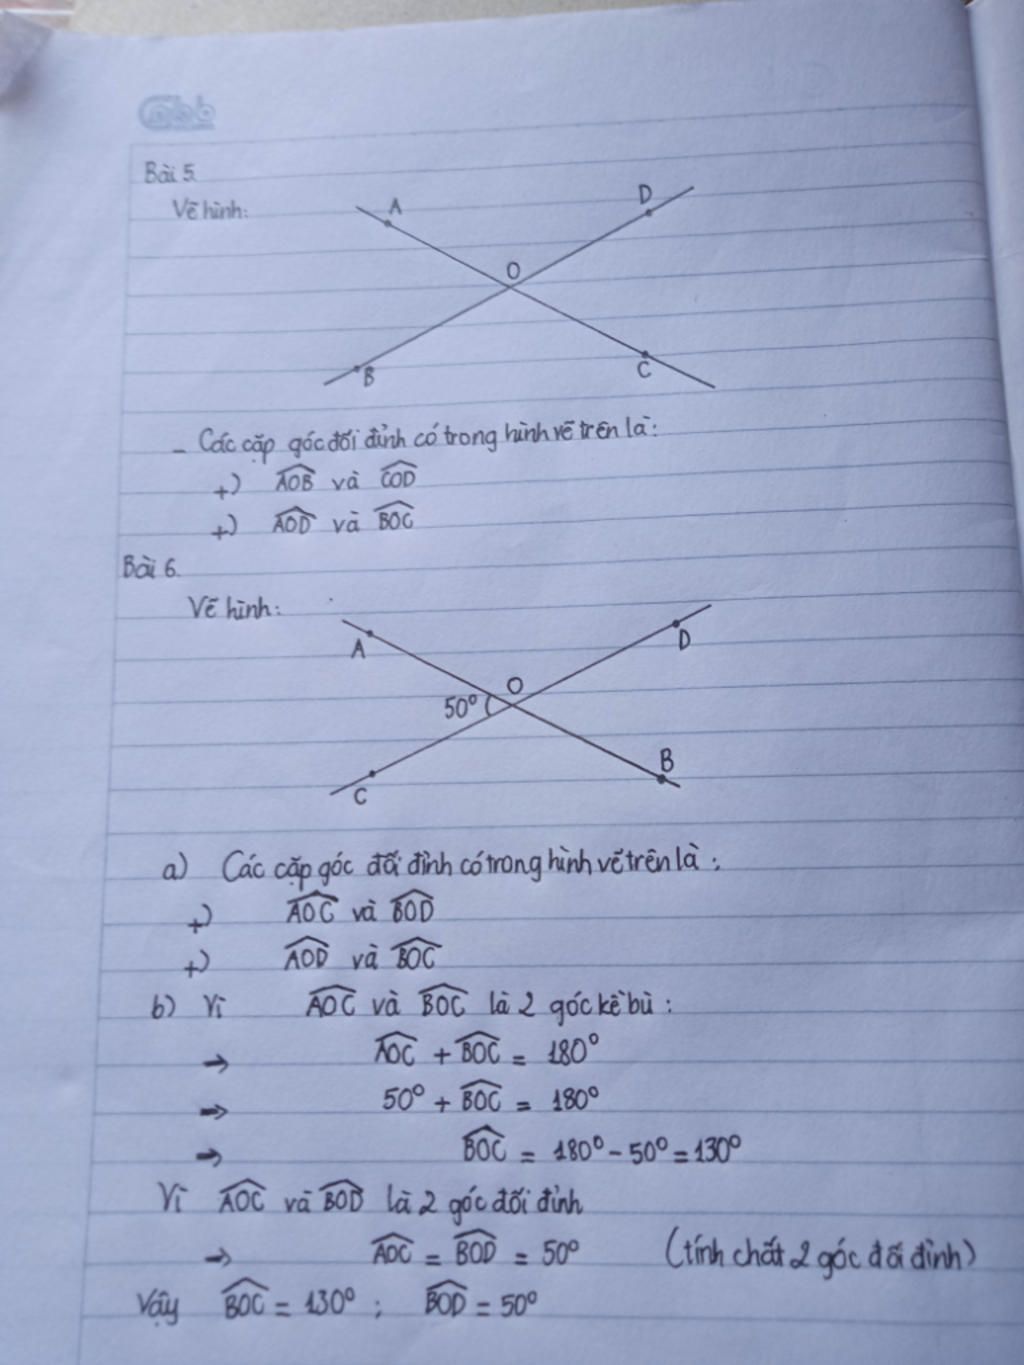 Bài 5.
Vẽ hình:
A
D
O
B
C
- Các cặp góc đối đỉnh có trong hình vẽ trên là:
+) AOB và COD
+) AOD và BOC
Bài 6.
Vẽ hình:
A
D
O
50°
B
C
a) Các cặp góc đối đỉnh có trong hình vẽ trên là:
+) AOC và BOD
+) AOD và BOC
b) Vì AOC và BOC là 2 góc kề bù:
→ AOC + BOC = 180°
→ 50° + BOC = 180°
→ BOC = 180° - 50° = 130°
Vì AOC và BOD là 2 góc đối đỉnh
→ AOC = BOD = 50° (tính chất 2 góc đối đỉnh)
Vậy BOC = 130° ; BOD = 50°